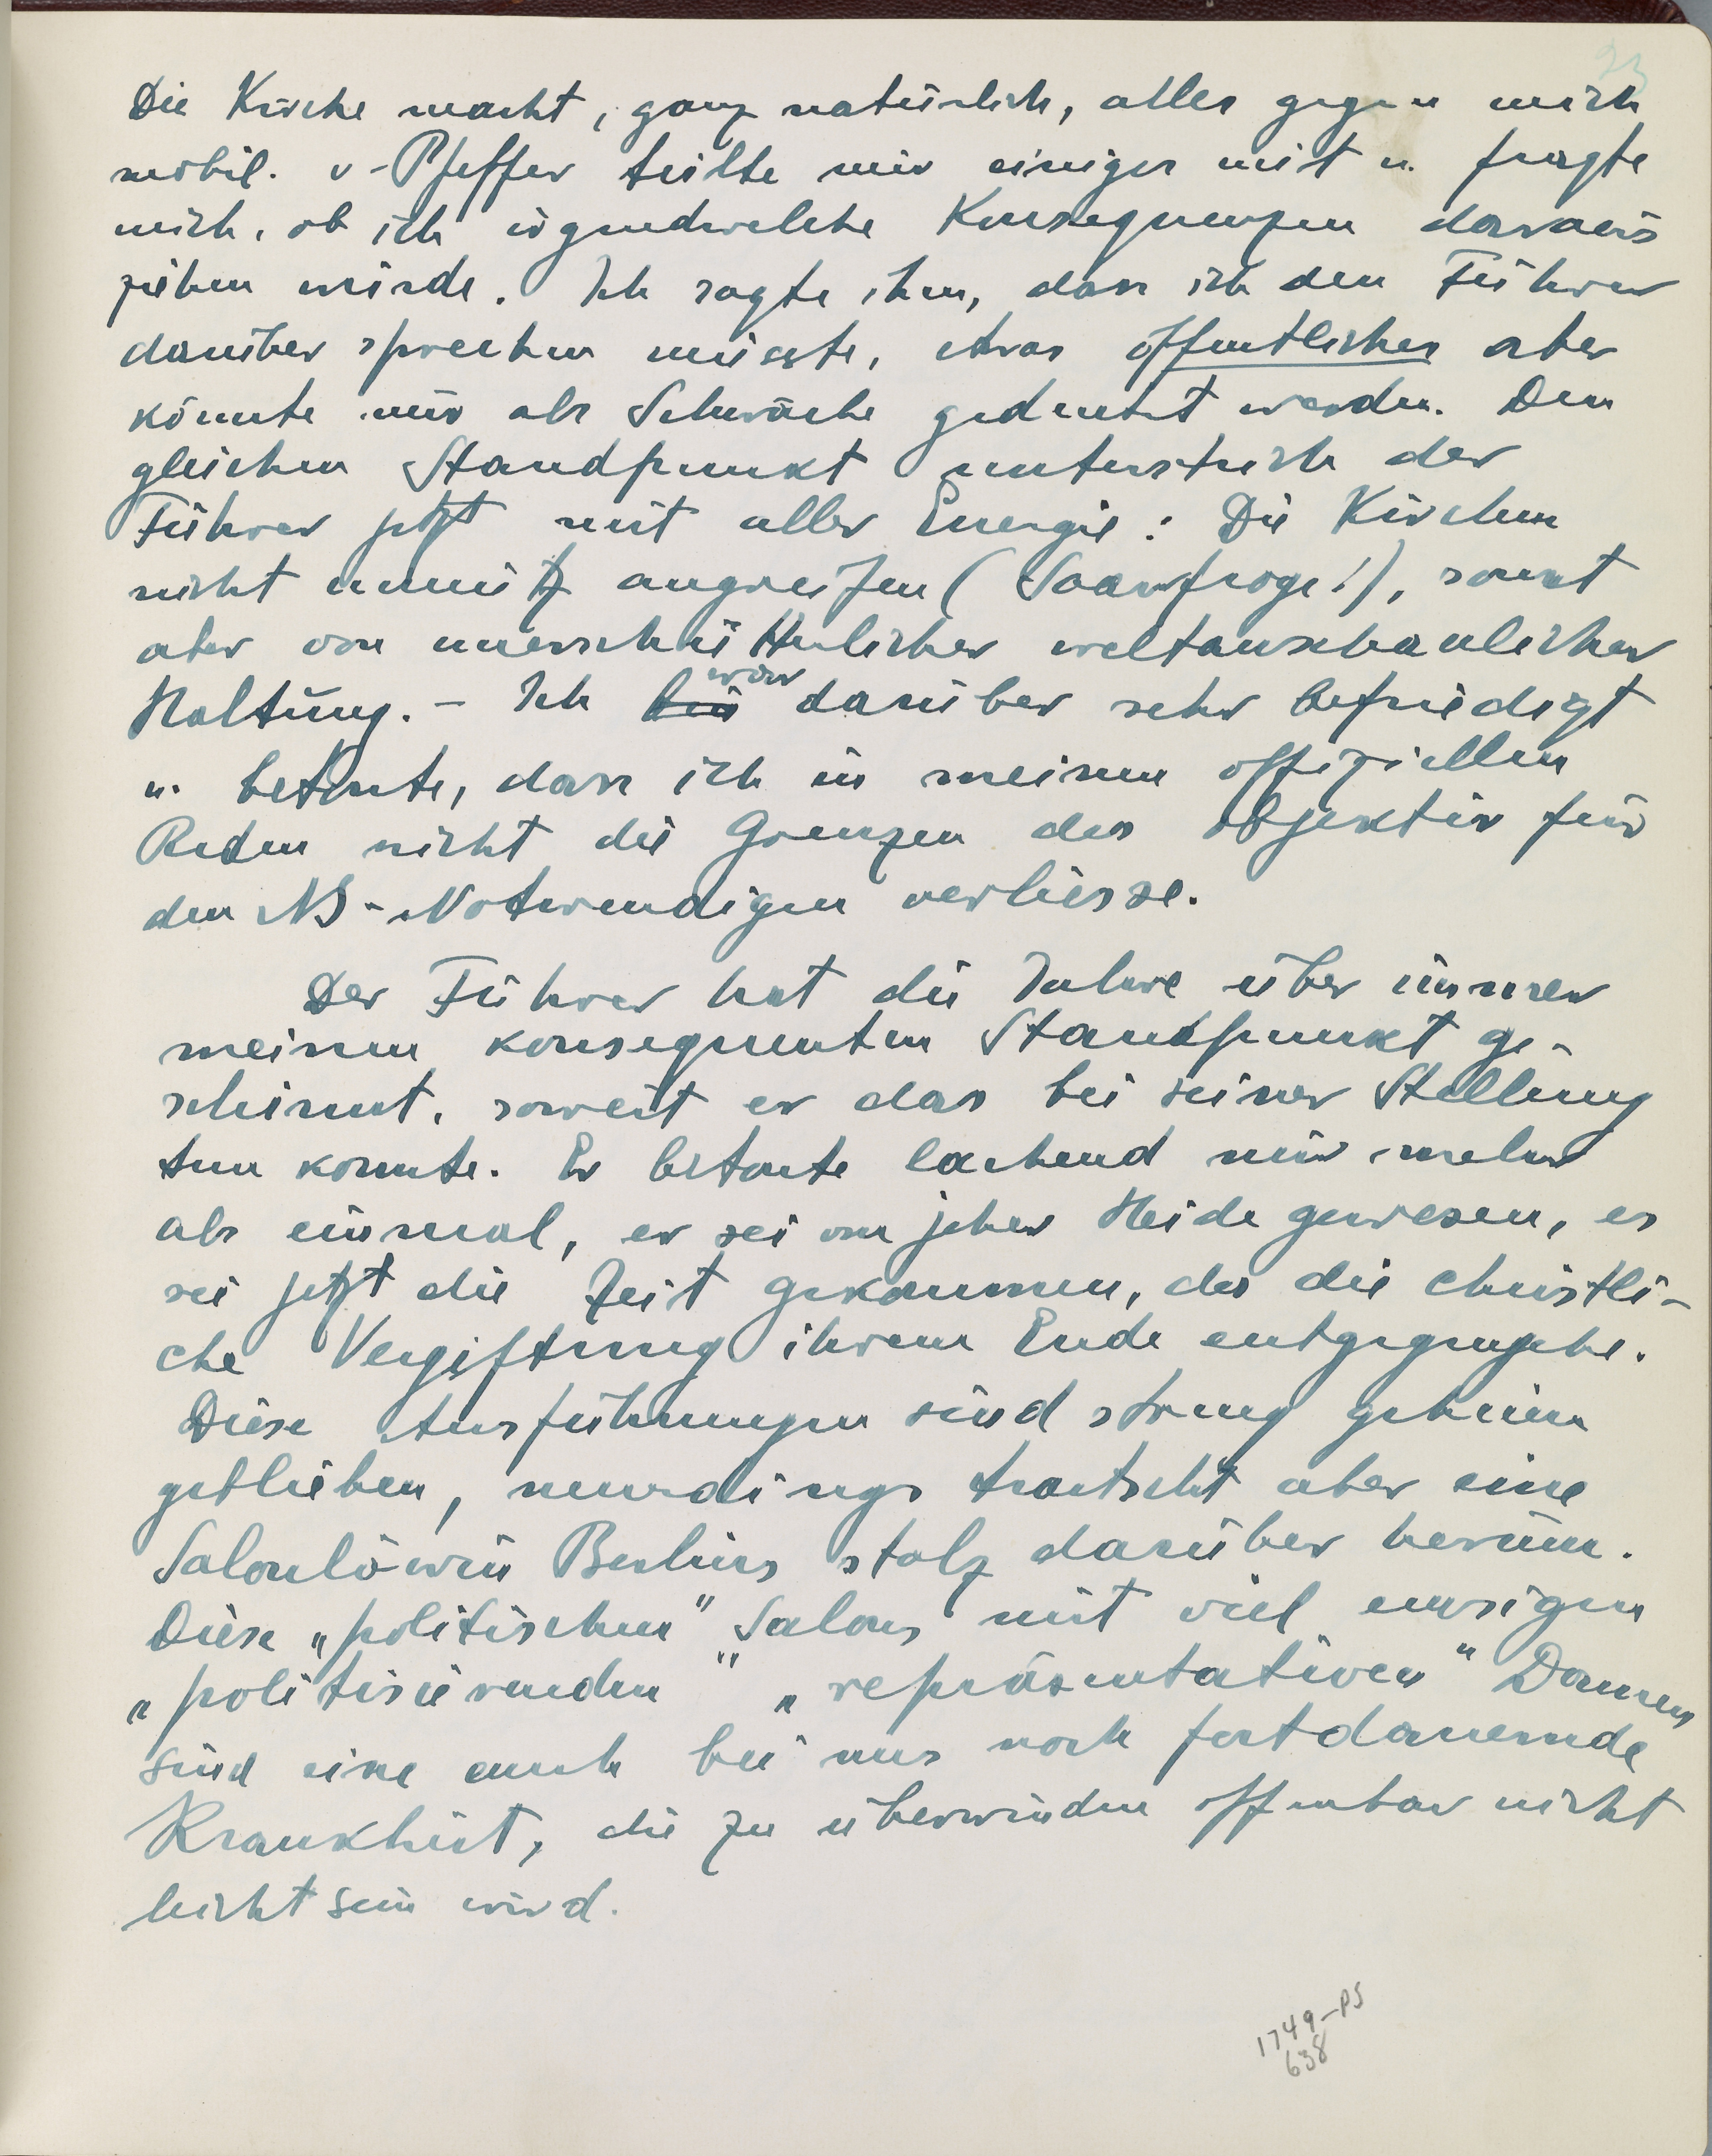 23
Die Kirche macht, ganz natürlich, alles gegen mich
mobil. v-Pfeffer teilte mir einiges mit u. fragte
mich, ob ich irgendwelche Konsequenzen daraus
ziehen würde. Ich sagte ihm, dass ich den Führer
darüber sprechen müsste, etwas öffentliches aber
könnte nur als Schwäche gedeutet werden. Den
gleichen Standpunkt unterstrich der
Führer jetzt mit aller Energie: Die Kirchen
nicht unnütz angreifen (Saarfrage!), sonst
aber von unerschütterlicher weltanschaulicher
Haltung. – Ich bin war darüber sehr befriedigt
u. betonte, dass ich in meinen offiziellen
Reden nicht die Grenzen des objektiv für
den NS-Notwendigen verliesse.
Der Führer hat die Jahre über immer
meinen konsequenten Standpunkt ge-
schirmt, soweit er das bei seiner Stellung
tun konnte. Er betonte lachend mir mehr
als einmal, er sei von jeher Heide gewesen, es
sei jetzt die Zeit gekommen, da die christli-
che Vergiftung ihrem Ende entgegengehe.
Diese Ausführungen sind streng geheim
geblieben, neuerdings tratscht aber eine
Salonlöwin Berlins stolz darüber herum.
Diese „politischen" Salons mit viel emsigen
„politisierenden" „repräsentativen" Damen
sind eine auch bei uns noch fortdauernde
Krankheit, die zu überwinden offenbar nicht
leicht sein wird.
1749-PS
638